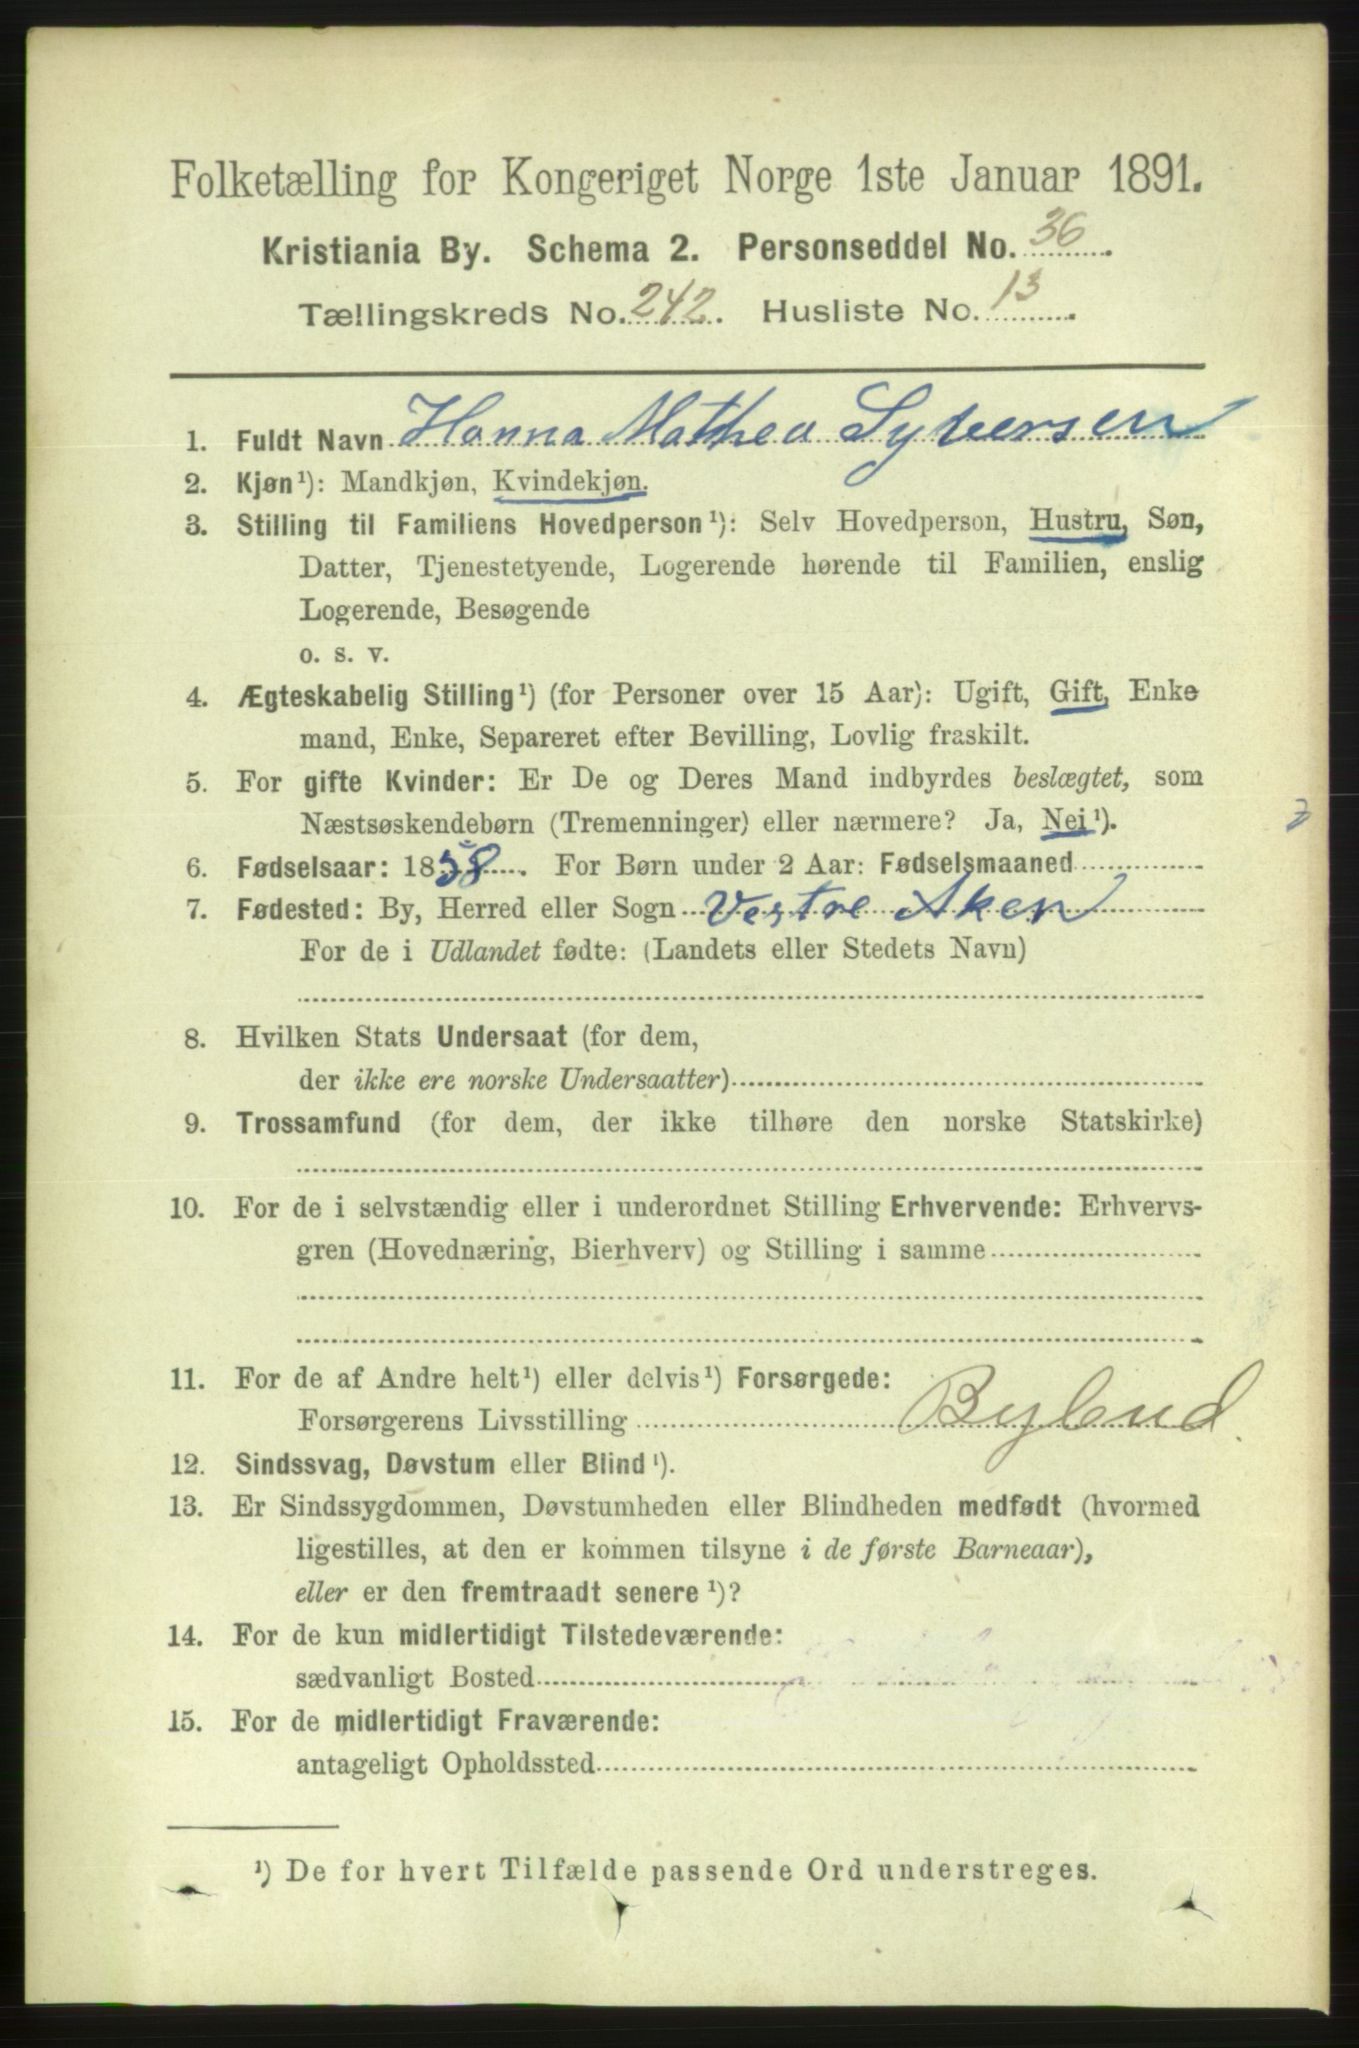 Folketælling for Kongeriget Norge 1ste Januar 1891.
Kristiania By. Schema 2. Personseddel No. 36
Tællingskreds No. 242. Husliste No. 13
1. Fuldt Navn Hanna Mathea Syversen
2. Kjøn¹): Mandkjøn, Kvindekjøn.
3. Stilling til Familiens Hovedperson¹): Selv Hovedperson, Hustru, Søn,
Datter, Tjenestetyende, Logerende hørende til Familien, enslig
Logerende, Besøgende
o. s. v.
4. Ægteskabelig Stilling¹) (for Personer over 15 Aar): Ugift, Gift, Enke
mand, Enke, Separeret efter Bevilling, Lovlig fraskilt.
5. For gifte Kvinder: Er De og Deres Mand indbyrdes beslægtet, som
Næstsøskendebørn (Tremenninger) eller nærmere? Ja, Nei¹).
6. Fødselsaar: 1858. For Børn under 2 Aar: Fødselsmaaned
7. Fødested: By, Herred eller Sogn Vestre Aker
For de i Udlandet fødte: (Landets eller Stedets Navn)
8. Hvilken Stats Undersaat (for dem,
der ikke ere norske Undersaatter)
9. Trossamfund (for dem, der ikke tilhøre den norske Statskirke)
10. For de i selvstændig eller i underordnet Stilling Erhvervende: Erhvervs-
gren (Hovednæring, Bierhverv) og Stilling i samme
11. For de af Andre helt¹) eller delvis¹) Forsørgede:
Forsørgerens Livsstilling Bybud.
12. Sindssvag, Døvstum eller Blind¹).
13. Er Sindssygdommen, Døvstumheden eller Blindheden medfødt (hvormed
ligestilles, at den er kommen tilsyne i de første Barneaar),
eller er den fremtraadt senere¹)?
14. For de kun midlertidigt Tilstedeværende:
sædvanligt Bosted
15. For de midlertidigt Fraværende:
antageligt Opholdssted
¹) De for hvert Tilfælde passende Ord understreges.